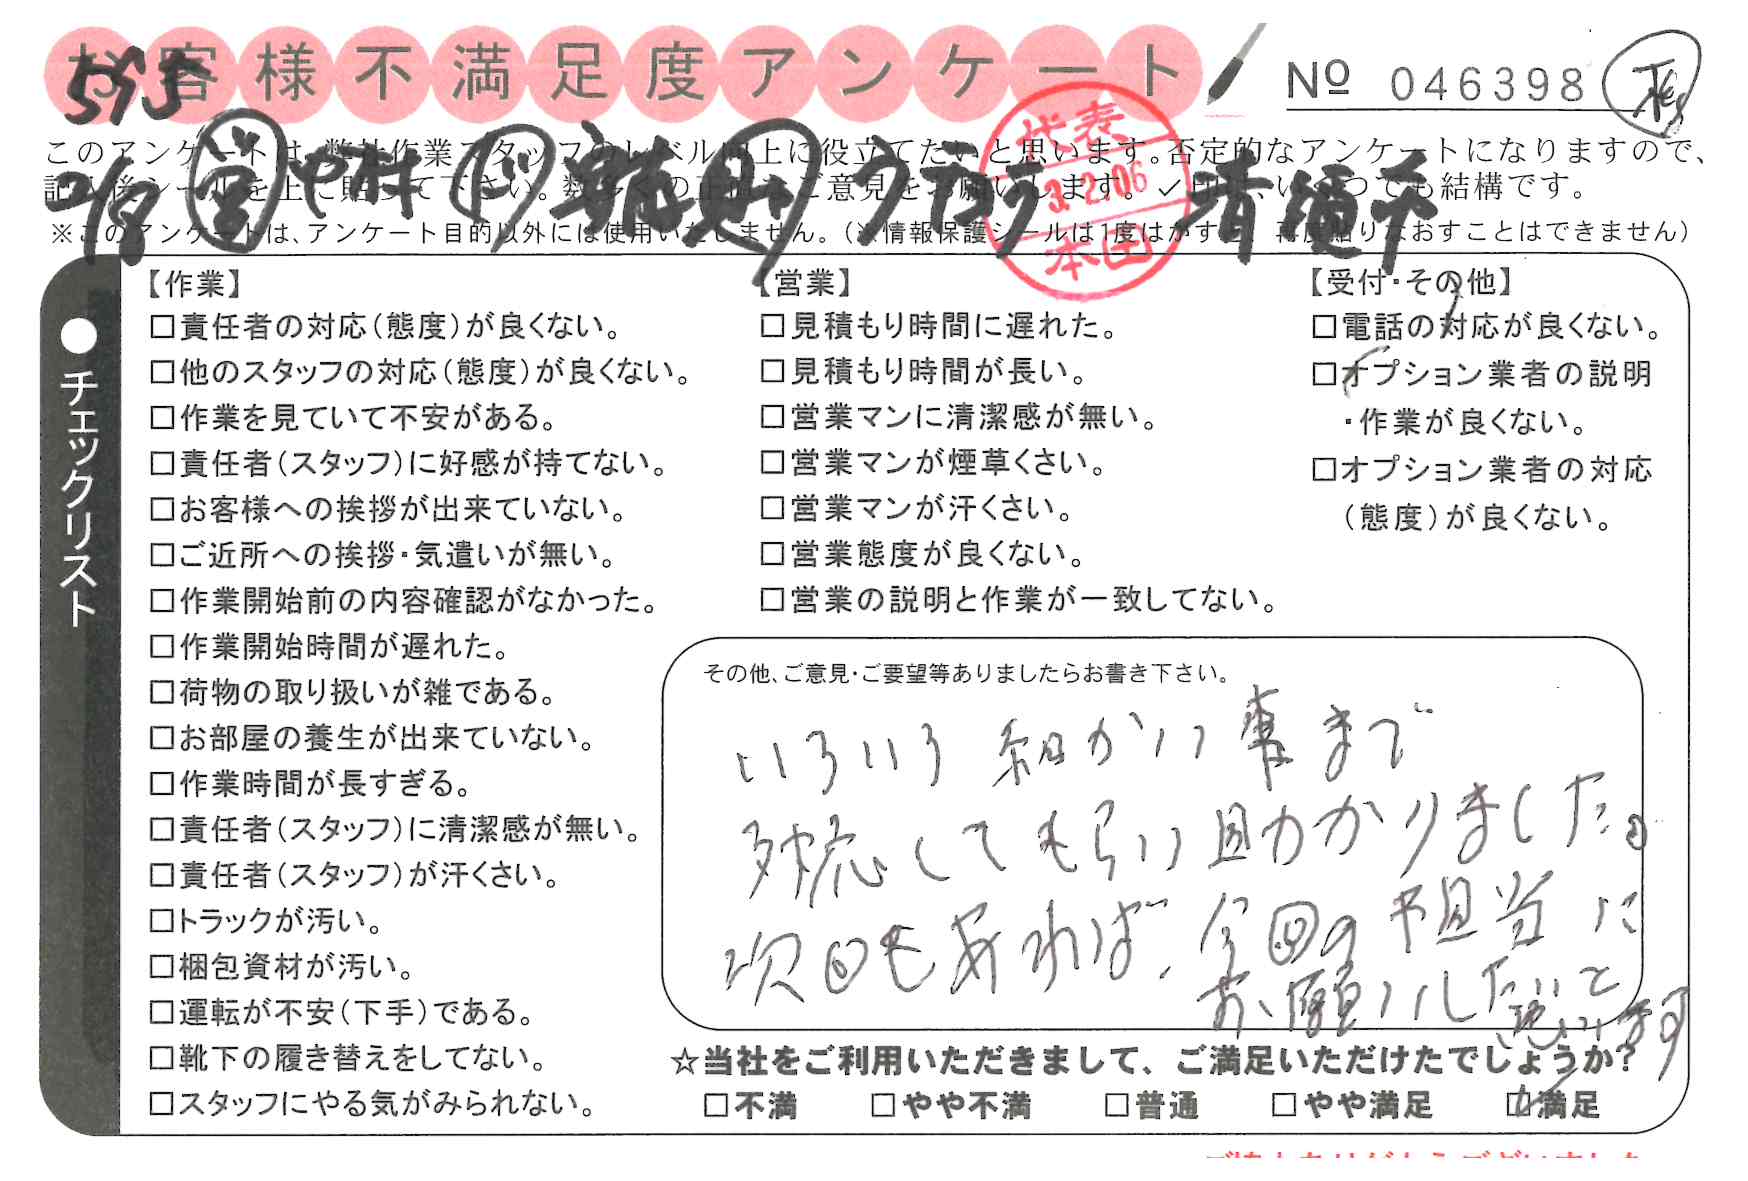 お客様不満足度アンケート
No 046398
このアンケートは、弊社作業スタッフのレベル向上に役立てたいと思います。否定的なアンケートになりますので、
記入後シールを上に貼って下さい。数多くの正直なご意見をお願いします。✓印は、いくつでも結構です。
※このアンケートは、アンケート目的以外には使用いたしません。(※情報保護シールは1度はがすと、再度貼りなおすことはできません)
代表
3.2.06
本田
●チェックリスト
【作業】
□責任者の対応(態度)が良くない。
□他のスタッフの対応(態度)が良くない。
□作業を見ていて不安がある。
□責任者(スタッフ)に好感が持てない。
□お客様への挨拶が出来ていない。
□ご近所への挨拶・気遣いが無い。
□作業開始前の内容確認がなかった。
□作業開始時間が遅れた。
□荷物の取り扱いが雑である。
□お部屋の養生が出来ていない。
□作業時間が長すぎる。
□責任者(スタッフ)に清潔感が無い。
□責任者(スタッフ)が汗くさい。
□トラックが汚い。
□梱包資材が汚い。
□運転が不安(下手)である。
□靴下の履き替えをしてない。
□スタッフにやる気がみられない。
【営業】
□見積もり時間に遅れた。
□見積もり時間が長い。
□営業マンに清潔感が無い。
□営業マンが煙草くさい。
□営業マンが汗くさい。
□営業態度が良くない。
□営業の説明と作業が一致してない。
【受付・その他】
□電話の対応が良くない。
□オプション業者の説明
・作業が良くない。
□オプション業者の対応
(態度)が良くない。
その他、ご意見・ご要望等ありましたらお書き下さい。
いろいろ細かい事まで
対応してもらい助かりました。
次回もあれば、今回の担当に
お願いしたいと
思います
☆当社をご利用いただきまして、ご満足いただけたでしょうか?
□不満 □やや不満 □普通 □やや満足 ☑満足